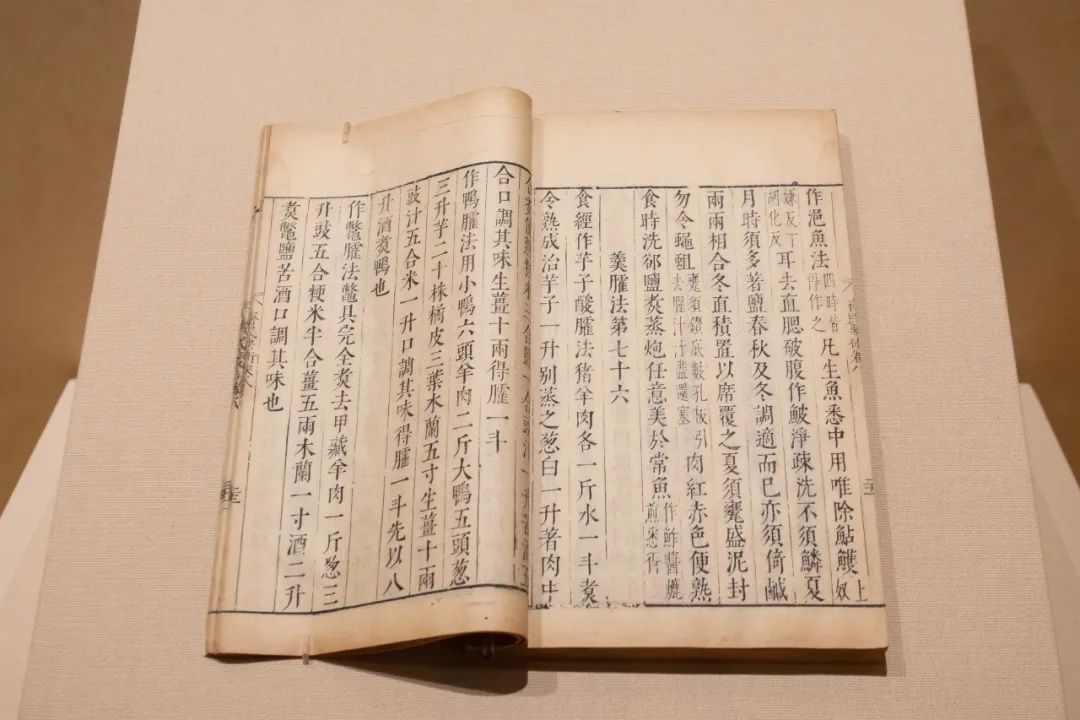 作浥魚法四時皆得作之凡生魚悉中用唯除鮎鱯上奴
嫌反下胡化反耳去直腮破腹作鮍淨疎洗不須鱗夏
月時須多著鹽春秋及冬調適而已亦須倚鹹
兩兩相合冬直積置以席覆之夏須甕盛泥封
勿令蠅蛆甕須鑽底數孔板引去腥汁汁盡還塞肉紅赤色便熟
食時洗卻鹽煑蒸炮任意美於常魚作鮓醬爊煎悉得
羹臛法第七十六
食經作芋子酸臛法猪羊肉各一斤水一斗煑
令熟成治芋子一升別蒸之葱白一升著肉中
合口調其味生薑十兩得臛一斗
作鴨臛法用小鴨六頭羊肉二斤大鴨五頭葱
三升芋二十株橘皮三葉木蘭五寸生薑十兩
豉汁五合米一升口調其味得臛一斗先以八
升酒煑鴨也
作鼈臛法鼈具完全煑去甲藏羊肉一斤葱三
升豉五合粳米半合薑五兩木蘭一寸酒二升
煑鼈鹽苦酒口調其味也